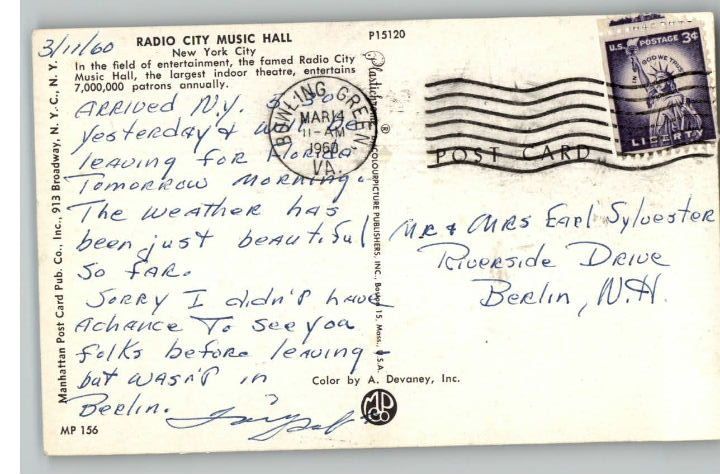 3/11/60
RADIO CITY MUSIC HALL
New York City
In the field of entertainment, the famed Radio City
Music Hall, the largest indoor theatre, entertains
7,000,000 patrons annually.
P15120
ARRIVED N.Y.
yesterday &
leaving for Florida
Tomorrow morning.
The weather has
been just beautiful
so far.
Sorry I didn't have
a chance To see you
folks before leaving -
but wasn't in
Berlin.
MP 156
Manhattan Post Card Pub. Co., Inc., 913 Broadway, N. Y. C., N. Y.
Plastichrome ® COLOURPICTURE PUBLISHERS, INC., Boston 15, Mass., U.S.A.
BOWLING GREEN
MAR 14
11-AM
1960
VA.
POST CARD
U.S. POSTAGE 3¢
IN GOD WE TRUST
LIBERTY
Mr & Mrs Earl Sylvester
Riverside Drive
Berlin, N.H.
Color by A. Devaney, Inc.
MP
Co